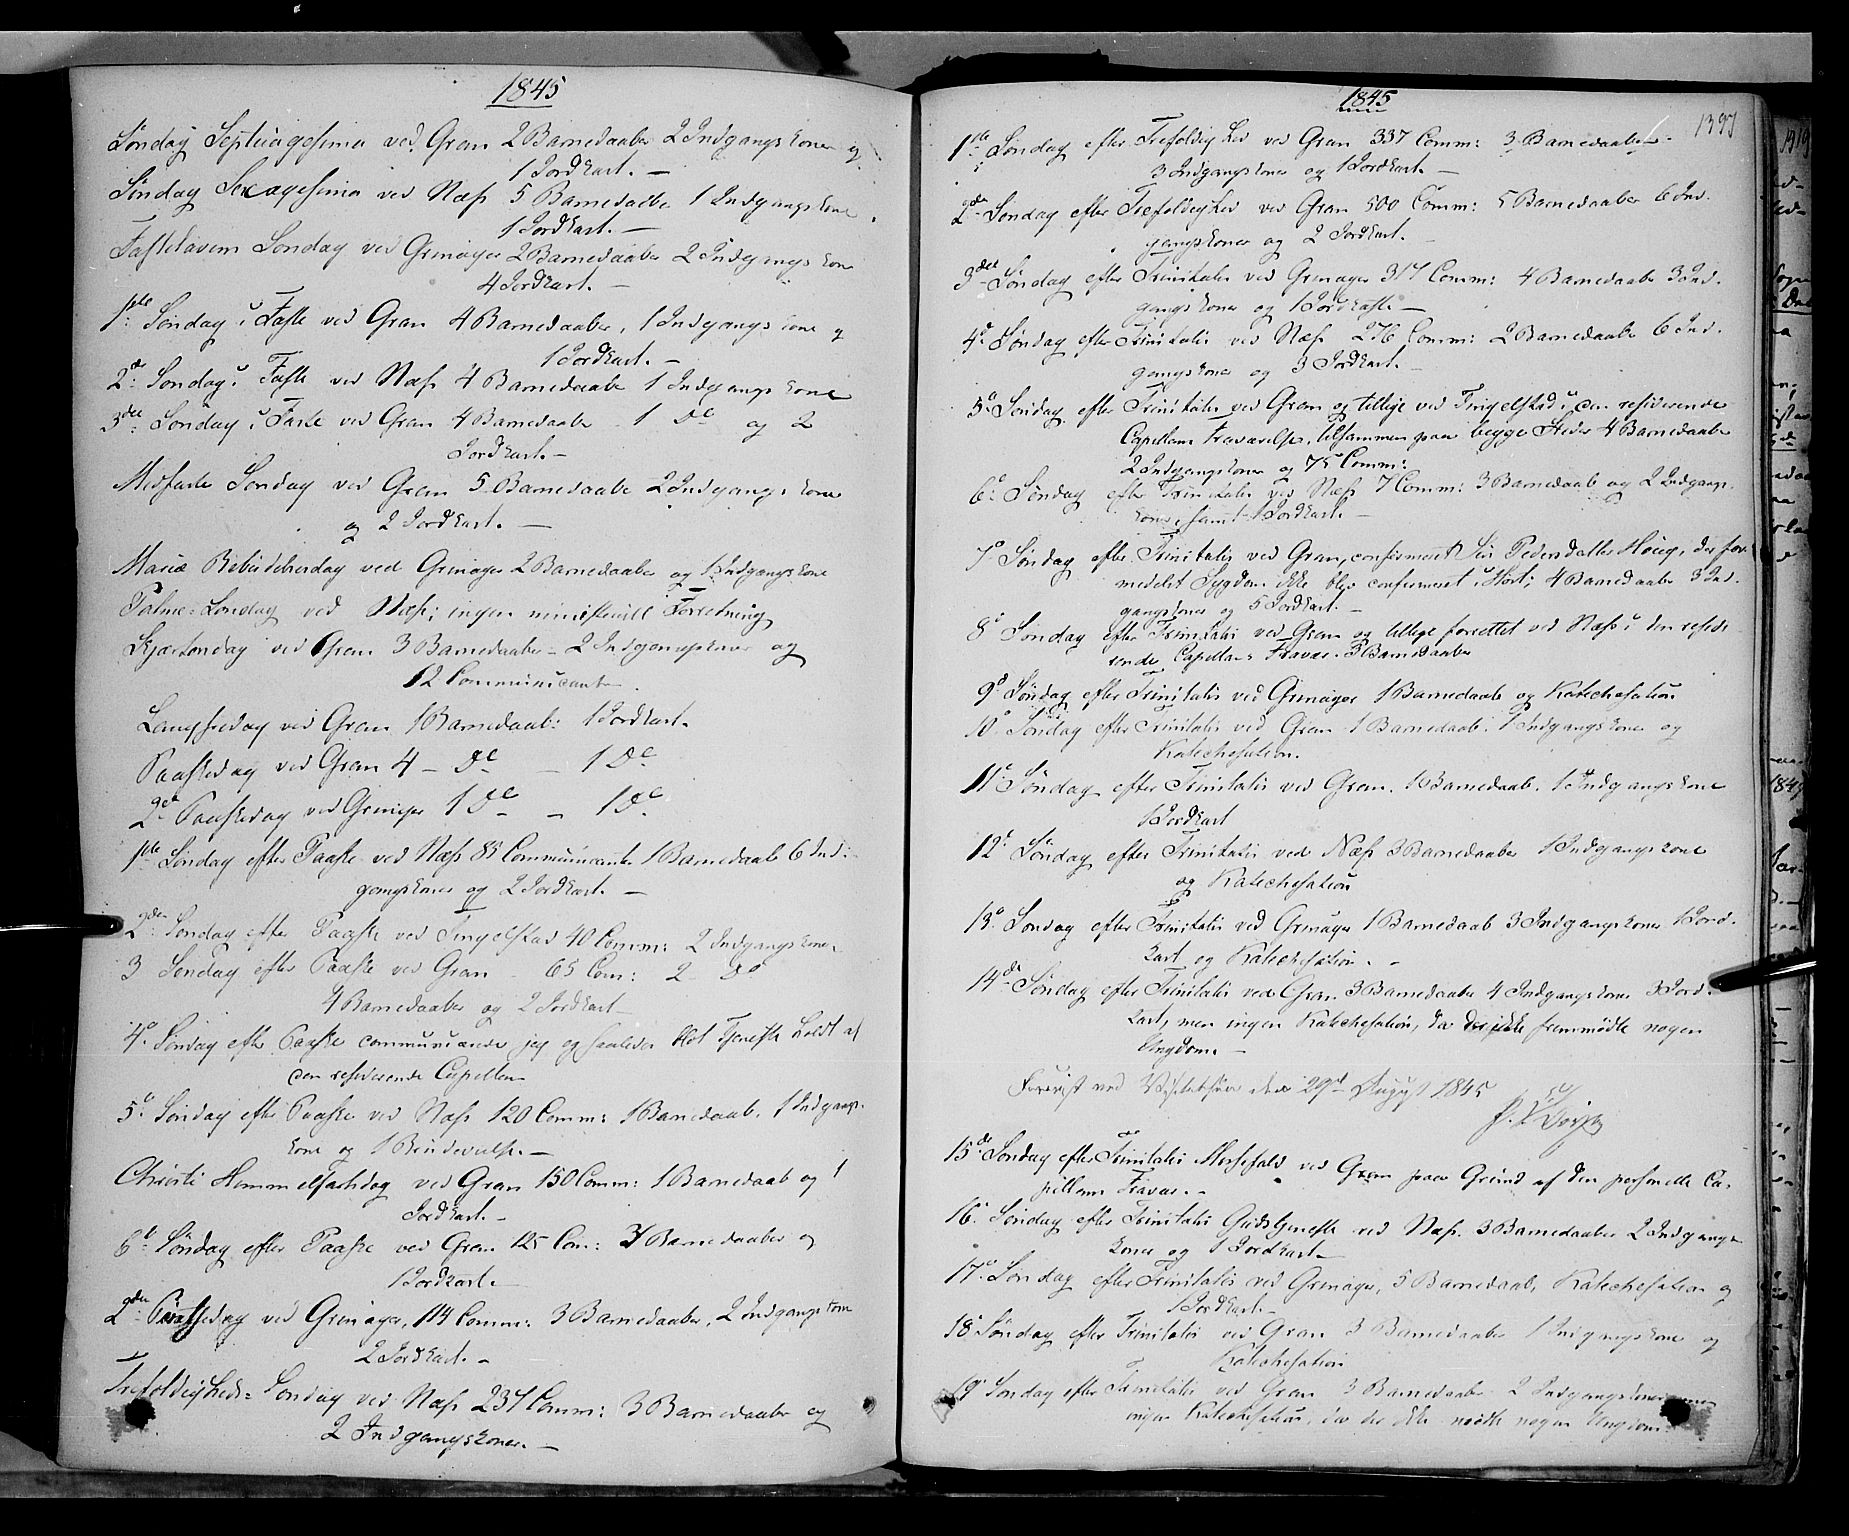 1845
Søndag Septuagesima ved Gran 2 Barnedaaber 2 Indgangskoner og
1 Jordkast. —
Søndag Sexagesima ved Næss 5 Barnedaabe 1 Indgangskone
1 Jordkast. —
Fastelavens Søndag ved Grinager 2 Barnedaaber 2 Indgangskone
4 Jordkast. —
1ste Søndag i Faste ved Gran 4 Barnedaaber, 1 Indgangskone og
1 Jordkast. —
2den Søndag i Faste ved Næss 4 Barnedaabe 1 Indgangskone
3die Søndag i Faste ved Gran 4 Barnedaabe 1 do og 2
Jordkast. —
Midfaste Søndag ved Gran 5 Barnedaabe 2 Indgangskone
og 2 Jordkast. —
Mariæ Bebudelsesdag ved Grinager 2 Barnedaaber og 1 Indgangskone
Palme-Søndag ved Næss; ingen ministeriell Forretning
Skjærtorsdag ved Gran 3 Barnedaabe – 2 Indgangskoner og
12 Communicant
Langfredag ved Gran 1 Barnedaab: 1 Jordkast.
Paaskedag ved Gran 4 – do – 1 do
2den Paaskedag ved Grinager 1 do – 1 do
1ste Søndag efter Paaske ved Næss 85 Communicante 1 Barnedaab 6 Ind-
gangskoner og 2 Jordkast. —
2den Søndag efter Paaske ved Tingelstad 40 Comm: 2 Indgangskoner
3 Søndag efter Paaske ved Gran – 65 Com: 2 do
4 Barnedaaber og 2 Jordkast —
4de Søndag efter Paaske communicerede jeg og saaledes blot Tjeneste holdt af
den residerende Capellan
5te Søndag efter Paaske ved Næss 120 Comm: 1 Barnedaab. 1 Indgangs-
kone og 1 Brudevielse. —
Christi Himmelfartsdag ved Gran 150 Comm: 1 Barnedaab og 1
Jordkast. —
6te Søndag efter Paaske ved Gran 125 Com: 3 Barnedaaber og
1 Jordkast. —
2den Pintsedag ved Grinager, 114 Comm: 3 Barnedaaber, 2 Indgangskone
2 Jordkast. —
Trefoldigheds-Søndag ved Næss 237 Comm: 3 Barnedaaber og
2 Indgangskoner. —
1845
1397
1ste Søndag efter Trefoldighed ved Gran 337 Comm: 3 Barnedaaber –
3 Indgangskoner og 1 Jordkast. —
2den Søndag efter Trefoldighed ved Gran 500 Comm: 5 Barnedaaber 6 Ind-
gangskoner og 2 Jordkast. —
3die Søndag efter Trinitatis ved Grinager 317 Comm: 4 Barnedaabe 3 Ind-
gangskoner og 1 Jordkaste —
4de Søndag efter Trinitatis ved Næss 276 Comm: 2 Barnedaabe 6 Ind-
gangskoner og 3 Jordkast. —
5te Søndag efter Trinitatis ved Gran og tillige ved Tingelstad i den residerende
Capellans Fraværelse, tilsammen paa begge Steder 4 Barnedaabe
2 Indgangskoner og 75 Comm:
6te Søndag efter Trinitatis ved Næss 7 Comm: 3 Barnedaab og 2 Indgangs-
koner, samt 1 Jordkast. —
7de Søndag efter Trinitatis ved Gran, confirmeret Siri Pedersdatter Houg, der for-
medelst Sygdom ikke blev confirmeret i Høst; 4 Barnedaabe 3 Ind-
gangskoner og 5 Jordkast. —
8de Søndag efter Trinitatis ved Gran og tillige forrettet ved Næss i den reside-
rende Capellans Fravær. 3 Barnedaaber
9de Søndag efter Trinitatis ved Grinager 1 Barnedaab og Katechesation
10de Søndag efter Trinitatis ved Gran 1 Barnedaab. 1 Indgangskone og
Katechesation.
11te Søndag efter Trinitatis ved Gran. 1 Barnedaab. 1 Indgangskone
1 Jordkast
12te Søndag efter Trinitatis ved Næss 3 Barnedaaber 1 Indgangskone
og Katechesation
13de Søndag efter Trinitatis ved Grinager 1 Barnedaab 3 Indgangskoner 1 Jord-
kast og Katechesation. –
14de Søndag efter Trinitatis ved Gran 3 Barnedaaber 4 Indgangskoner 3 Jord-
kast, men ingen Katechesation, da der ikke fremmødte nogen
Ungdom. —
Foreviist ved Visitatsen den 29de August 1845
15de Søndag efter Trinitatis Messefald ved Gran paa Grund af den personelle Ca-
pellans Fravær. –
16de Søndag efter Trinitatis Gudstjeneste ved Næss. 3 Barnedaaber 2 Indgangs-
koner og 1 Jordkast —
17de Søndag efter Trinitatis ved Grinager, 5 Barnedaab, Katechesation og
1 Jordkast. —
18de Søndag efter Trinitatis ved Gran 3 Barnedaaber 1 Indgangskone og
Katechesation
19de Søndag efter Trinitatis ved Gran 3 Barnedaaber 2 Indgangskoner men
ingen Katechesation, da der ikke mødte nogen Ungdom.